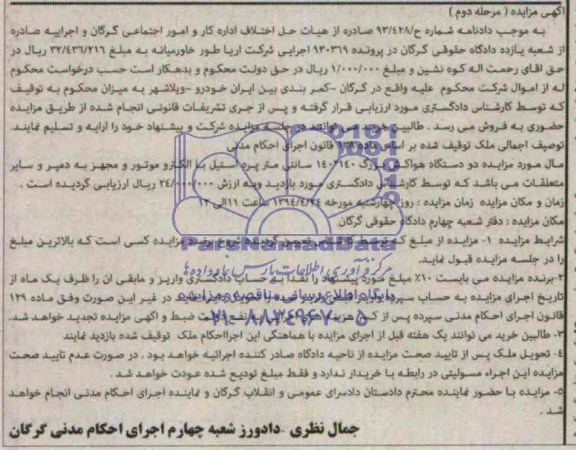 آگهی مزایده ( مرحله دوم )
به موجب دادنامه شماره ح/۹۳/۴۲۸ صادره از هیات حل اختلاف اداره کار و امور اجتماعی گرگان و اجراییه صادره
از شعبه یازده دادگاه حقوقی گرگان در پرونده ۹۳۰۳۶۹ اجرایی شرکت اریا طور خاورمیانه به مبلغ ۳۲/۴۳۶/۲۱۶ ریال در
حق اقای رحمت اله کوه نشین و مبلغ ۱/۰۰۰/۰۰۰ ریال در حق دولت محکوم و بدهکار است حسب درخواست محکوم
له از اموال شرکت محکوم علیه واقع در گرگان -کمر بندی بین ایران خودرو -ویلاشهر به میزان محکوم به توقیف
که توسط کارشناس دادگستری مورد ارزیابی قرار گرفته و پس از جری تشریفات قانونی انجام شده از طریق مزایده
حضوری به فروش می رسد . طالبین خرید می توانند در جلسه مزایده شرکت و پیشنهاد خود را ارایه و تسلیم نمایند.
توصیف اجمالی ملک توقیف شده بر اساس ماده ۱۳۸ قانون اجرای احکام مدنی
مال مورد مزایده دو دستگاه هواکش بزرگ ۱۴۰*۱۴۰ سانتی متر پره استیل با الکترو موتور و مجهز به دمپر و سایر
متعلقات می باشد که توسط کارشناس دادگستری مورد بازدید وبه ارزش ۲۴/۰۰۰/۰۰۰ ریال ارزیابی گردیده است .
زمان و مکان مزایده زمان مزایده : روز چهارشنبه مورخه ۱۳۹۴/۴/۲۴ ساعت ۱۱الی ۱۲
مکان مزایده : دفتر شعبه چهارم دادگاه حقوقی گرگان
شرایط مزایده ۱- مزایده از مبلغ که توسط کارشناس تعیین گردیده شروع برنده مزایده کسی است که بالاترین مبلغ
را در جلسه مزایده قبول نماید.
۲-برنده مزایده می بایست ۱۰٪ مبلغ مورد پیشنهاد را نقدا به حساب دادگستری واریز و مابقی ان را ظرف یک ماه از
تاریخ اجرای مزایده به حساب سپرده در غیر این صورت وفق ماده ۱۲۹
قانون اجرای احکام مدنی سپرده پس از کسر هزینه ضبط و اگهی مزایده تجدید خواهد شد.
۳- طالبین خرید می توانند یک هفته قبل از اجرای مزایده با هماهنگی این اجرااحکام ملک توقیف شده بازدید نمایند
۴- تحویل ملک پس از تایید صحت مزایده از ناحیه دادگاه صادر کننده اجرائیه خواهد بود . در صورت عدم تایید صحت
مزایده این اجراء مسولیتی در رابطه با خریدار ندارد و فقط مبلغ تودیع شده عودت خواهد شد .
۵- مزایده با حضور نماینده محترم دادستان دادسرای عمومی و انقلاب گرگان و نماینده اجرای احکام مدنی انجام خواهد
شد .
جمال نظری -دادورز شعبه چهارم اجرای احکام مدنی گرگان
ParsNamadData
مرکز فرآوری اطلاعات پارس نماد داده ها
پایگاه اطلاع رسانی مناقصه و مزایده
۰۲۱-۸۸۳۴۹۶۷۰-۵